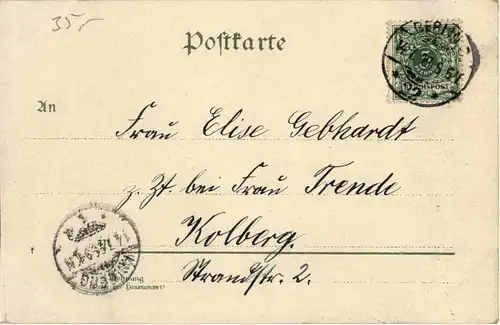 35,-
Postkarte
BERLIN
An
Frau Elise Gebhardt
z. Zt. bei Frau Trende
Kolberg.
Strandstr. 2.
Wohnung